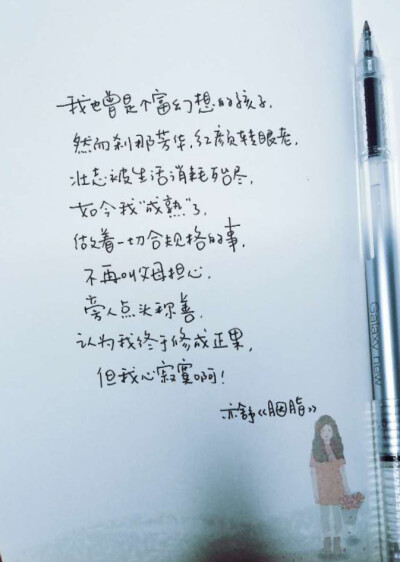 我也曾是个富幻想的孩子，
然而刹那芳华，红颜转眼老，
壮志被生活消耗殆尽，
如今我“成熟”了，
做着一切合规格的事，
不再叫父母担心，
旁人点头称善，
认为我终于修成正果，
但我心寂寞啊！
亦舒《胭脂》